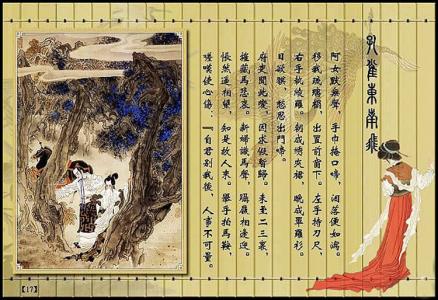 孔雀東南飛
阿女默無聲，手巾掩口啼，淚落便如瀉。
移我琉璃榻，出置前窗下。左手持刀尺，
右手執綾羅。朝成繡夾裙，晚成單羅衫。
日欲暝，愁思出門啼。
府吏聞此變，因求假暫歸。未至二三里，
摧藏馬悲哀。新婦識馬聲，躡履相逢迎。
悵然遙相望，知是故人來。舉手拍馬鞍，
嗟嘆使心傷：『自君別我後，人事不可量。
【17】